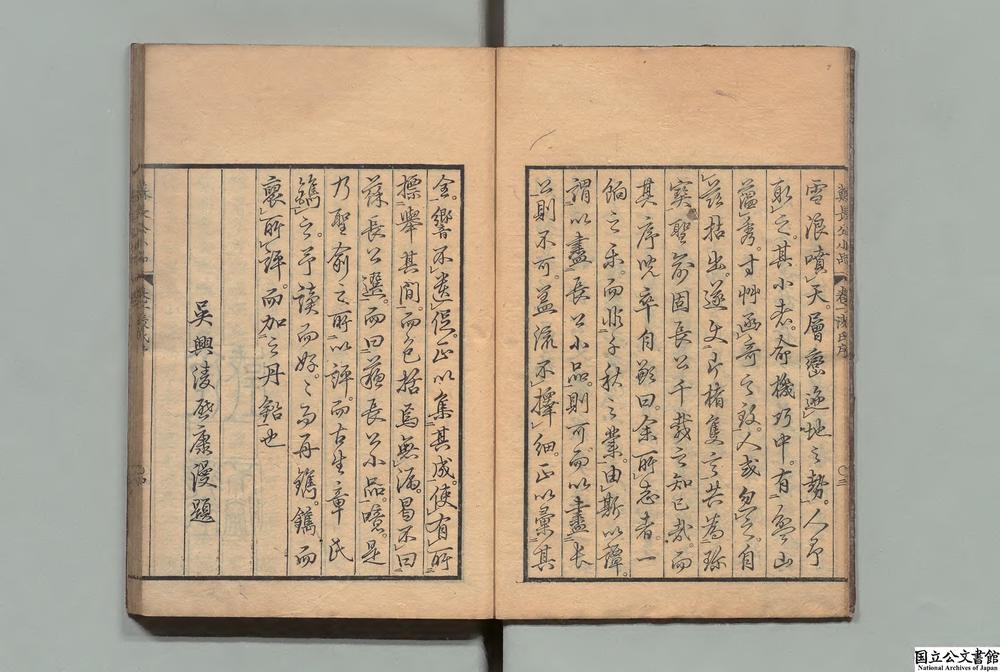 雪浪噴天層巒遮地之勢人爭
取之其小者俞機巧中有寧山
蘊秀寸艸函奇之致人或勿之自
茲拈出遂使片楮隻言共為珍
寶聖俞固長公千載之知已哉而
其序既卒自敘曰余所志者一
餉之樂而非千秋之業由斯以譚
謂以盡長公小品則可而以盡長
公則不可蓋流不擇細正以彙其
全響不遺促正以集其成使有所
標舉其間而包括焉無漏曷不曰
蘇長公選而曰蘇長公小品噫是
乃聖俞之所以評而古生章氏
鐫之予讀而好之而再鐫鐫而
裒所評而加之丹鉛也
吳興凌啓康漫題
蘇長公小品
卷一凌氏序
国立公文書館
National Archives of Japan